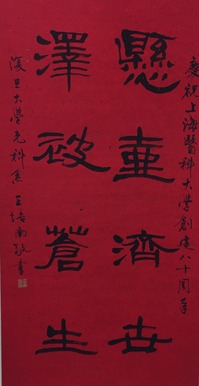 慶祝上海醫科大學創建八十周年
懸壺濟世
澤被蒼生
復旦大學光科系王培南敬書